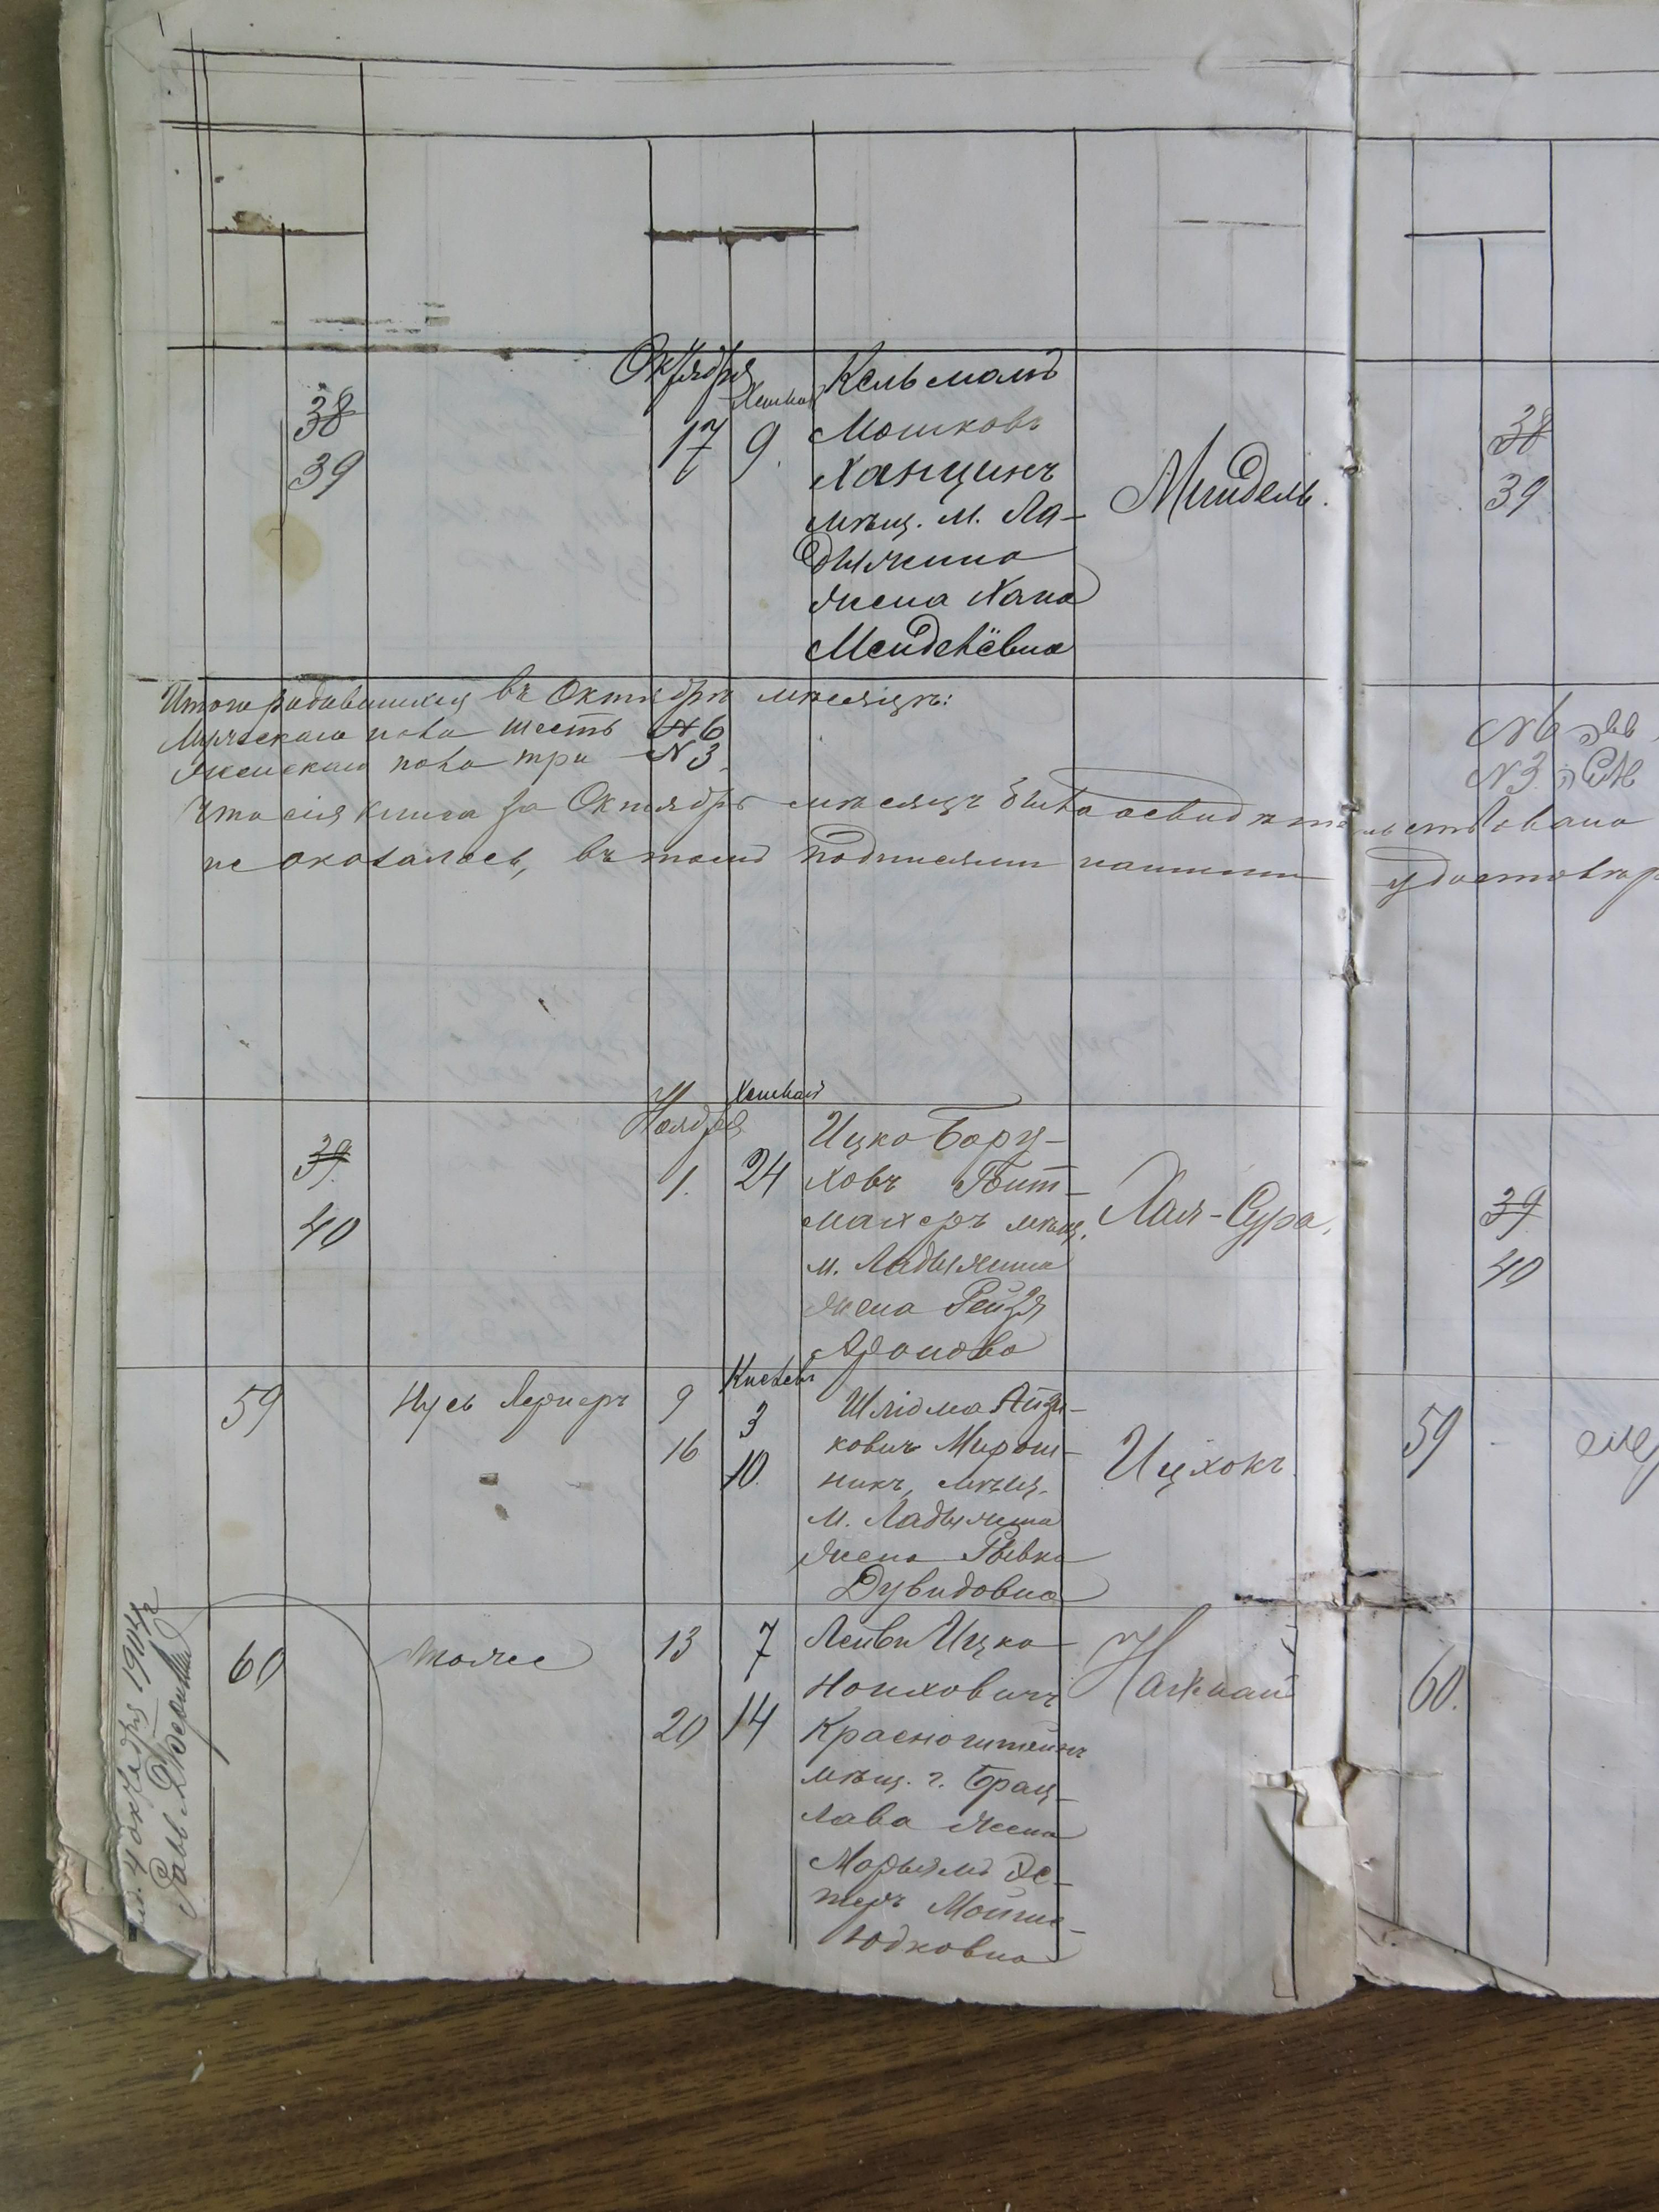 Октября
Хешван
38
39
17 9.
Кельманъ
Мошковъ
Ханцинъ
мѣщ. м. Ла-
дыжина
жена Хана
Менделёвна
Миндель.
38
39
Итого родившихся въ Октябрѣ мѣсяцѣ:
Мужескаго пола шесть №6
Женскаго пола три №3
№6
№3
Что сія книга за Октябрь мѣсяцъ была освидѣтельствована
не оказалось, въ томъ подписями нашими удостовѣр
Ноября
Хешван
39.
40
1. 24
Ицко Бору-
ховъ Бит-
махеръ мѣщ.
м. Ладыжина
жена Рейзя
Аронова
Хая-Сура,
39
40
Кислевъ
59
Нусь Лернеръ
9 3
16 10.
Шліома Айзи-
ковичъ Мирош-
никъ, мѣщ.
м. Ладыжина
жена Рывка
Дувидовна
Ицхокъ
59
60
тоже
13 7
20 14
Лейви Ицко
Ноиховичъ
Красноштейнъ
мѣщ. г. Брац-
лава жена
Марьямъ Эс-
теръ Мойше-
Юдковна
60.
4 октября 1904 г
Равв.